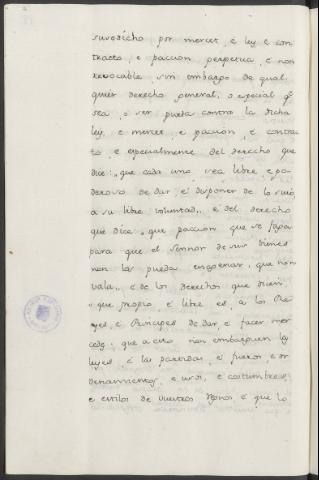 susodicho por merced, é ley é con
tracto, é paccion perpetua, é non
revocable, sin embargo de qual
quier derecho general, o especial q.e
sea, o ser pueda contra la dicha
ley, é merced, é paccion, é contrac
to, é especialmente del derecho que
dice: "que cada uno sea libre é po
deroso de dar, é disponer de lo suio,
a su libre voluntad", é del derecho
que dice: "que paccion que se faga
para que el Sennor de sus bienes
non las pueda enagenar, que non
vala", é de los derechos que dicen:
"que propio, é libre es, a los Re
yes, é Principes de dar, é facer mer
cedes: que a esto non embarguen las
leyes, é las partidas, é fueros, é or
denamientos, é usos, é costumbres,
é estilos de vuestros Regnos, é que lo